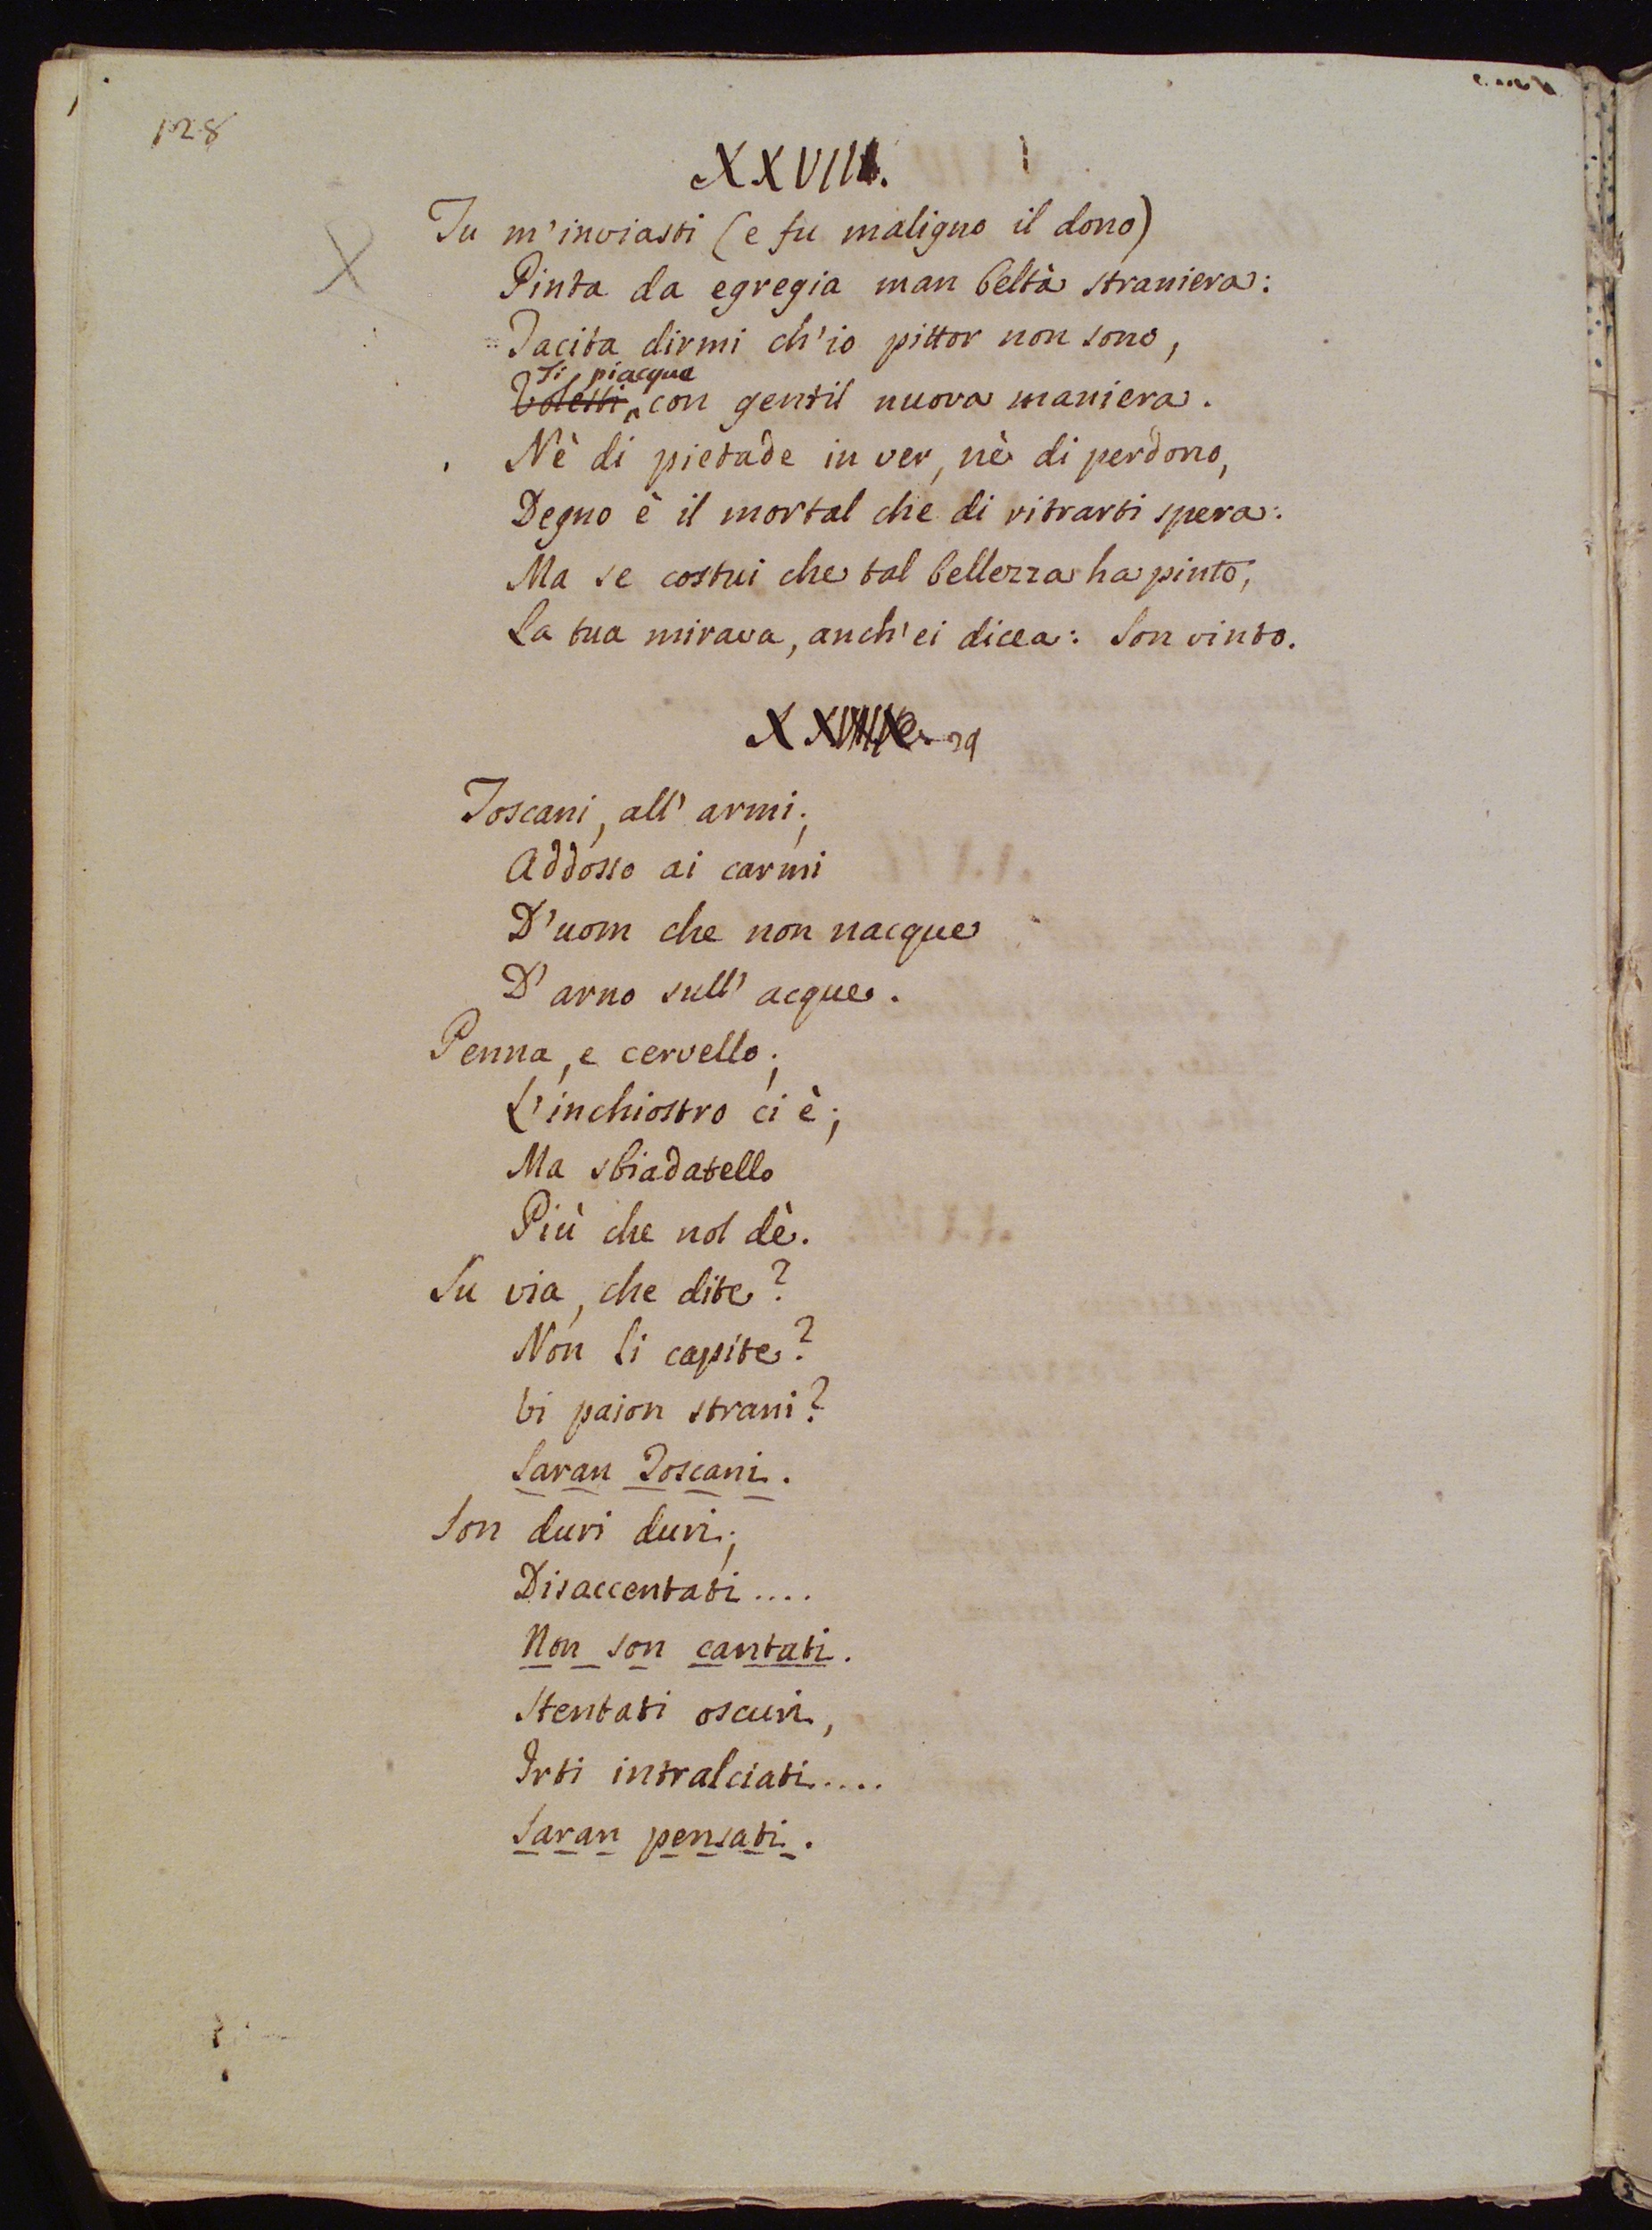 128
XXVIII.
Tu m'inviasti (e fu maligno il dono)
Pinta da egregia man beltà straniera:
Tacita dirmi ch'io pittor non sono,
Ti piacque
Volesti con gentil nuova maniera.
Nè di pietade in ver, nè di perdono,
Degno è il mortal che di ritrarti spera:
Ma se costui che tal bellezza ha pinto,
La tua mirava, anch'ei dicea: Son vinto.
29
Toscani, all' armi;
Addosso ai carmi
D'uom che non nacque
D'arno sull' acque.
Penna, e cervello;
L'inchiostro ci è;
Ma sbiadatello
Più che nol dè.
Su via, che dite?
Non li capite?
Vi paion strani?
Saran Toscani.
Son duri duri;
Disaccentati....
Non son cantati.
Stentati oscuri,
Irti intralciati.....
Saran pensati.